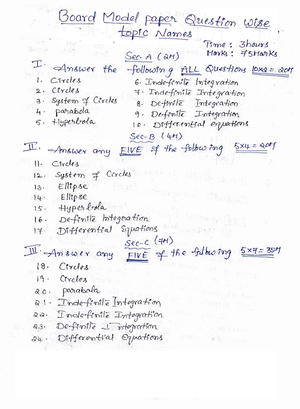 Board Model paper Question wise
topic Names
Time : 3hours
Marks : 75Marks
Sec-A (2M)
I. Answer the following ALL Questions 10x2=20M
1. Circles
2. Circles
3. System of Circles
4. parabola
5. Hyperbola
6. Indefinite Integration
7. Indefinite Integration
8. Definite Integration
9. Definite Integration
10. Differential equations
Sec-B (4M)
II. Answer any FIVE of the following 5x4=20M
11. Circles
12. System of Circles
13. Ellipse
14. Ellipse
15. Hyperbola
16. Definite Integration
17. Differential Equations
Sec-C (7M)
III. Answer any FIVE of the following 5x7=35M
18. Circles
19. Circles
20. parabola
21. Indefinite Integration
22. Indefinite Integration
23. Definite Integration
24. Differential Equations